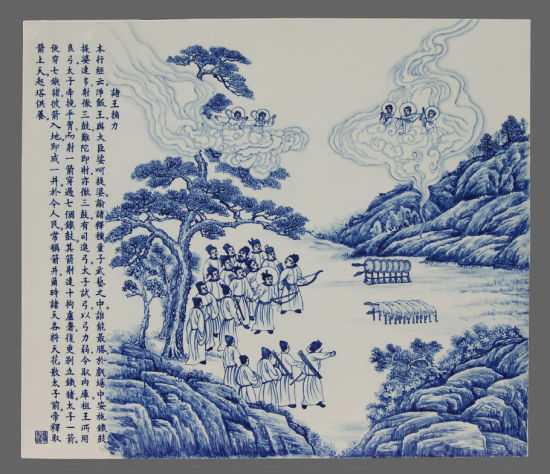 諸王捔力
本行經云淨飯王與大臣婆呵提婆論諸釋種童子武藝之中誰能最勝於戲場中安施鐵鼓
提婆達多射徹三鼓難陀即射亦徹三鼓有司進弓太子試弓以弓力弱令取內庫祖王所用
良弓太子牽挽平胷而射一箭穿過七個鐵鼓其箭射達十拘盧奢復更別立鐵猪太子一箭
便穿七鐵猪彼箭入地即成一井於今人民常稱箭井爾時諸天各將天花散太子前帝釋取
箭上天起塔供養